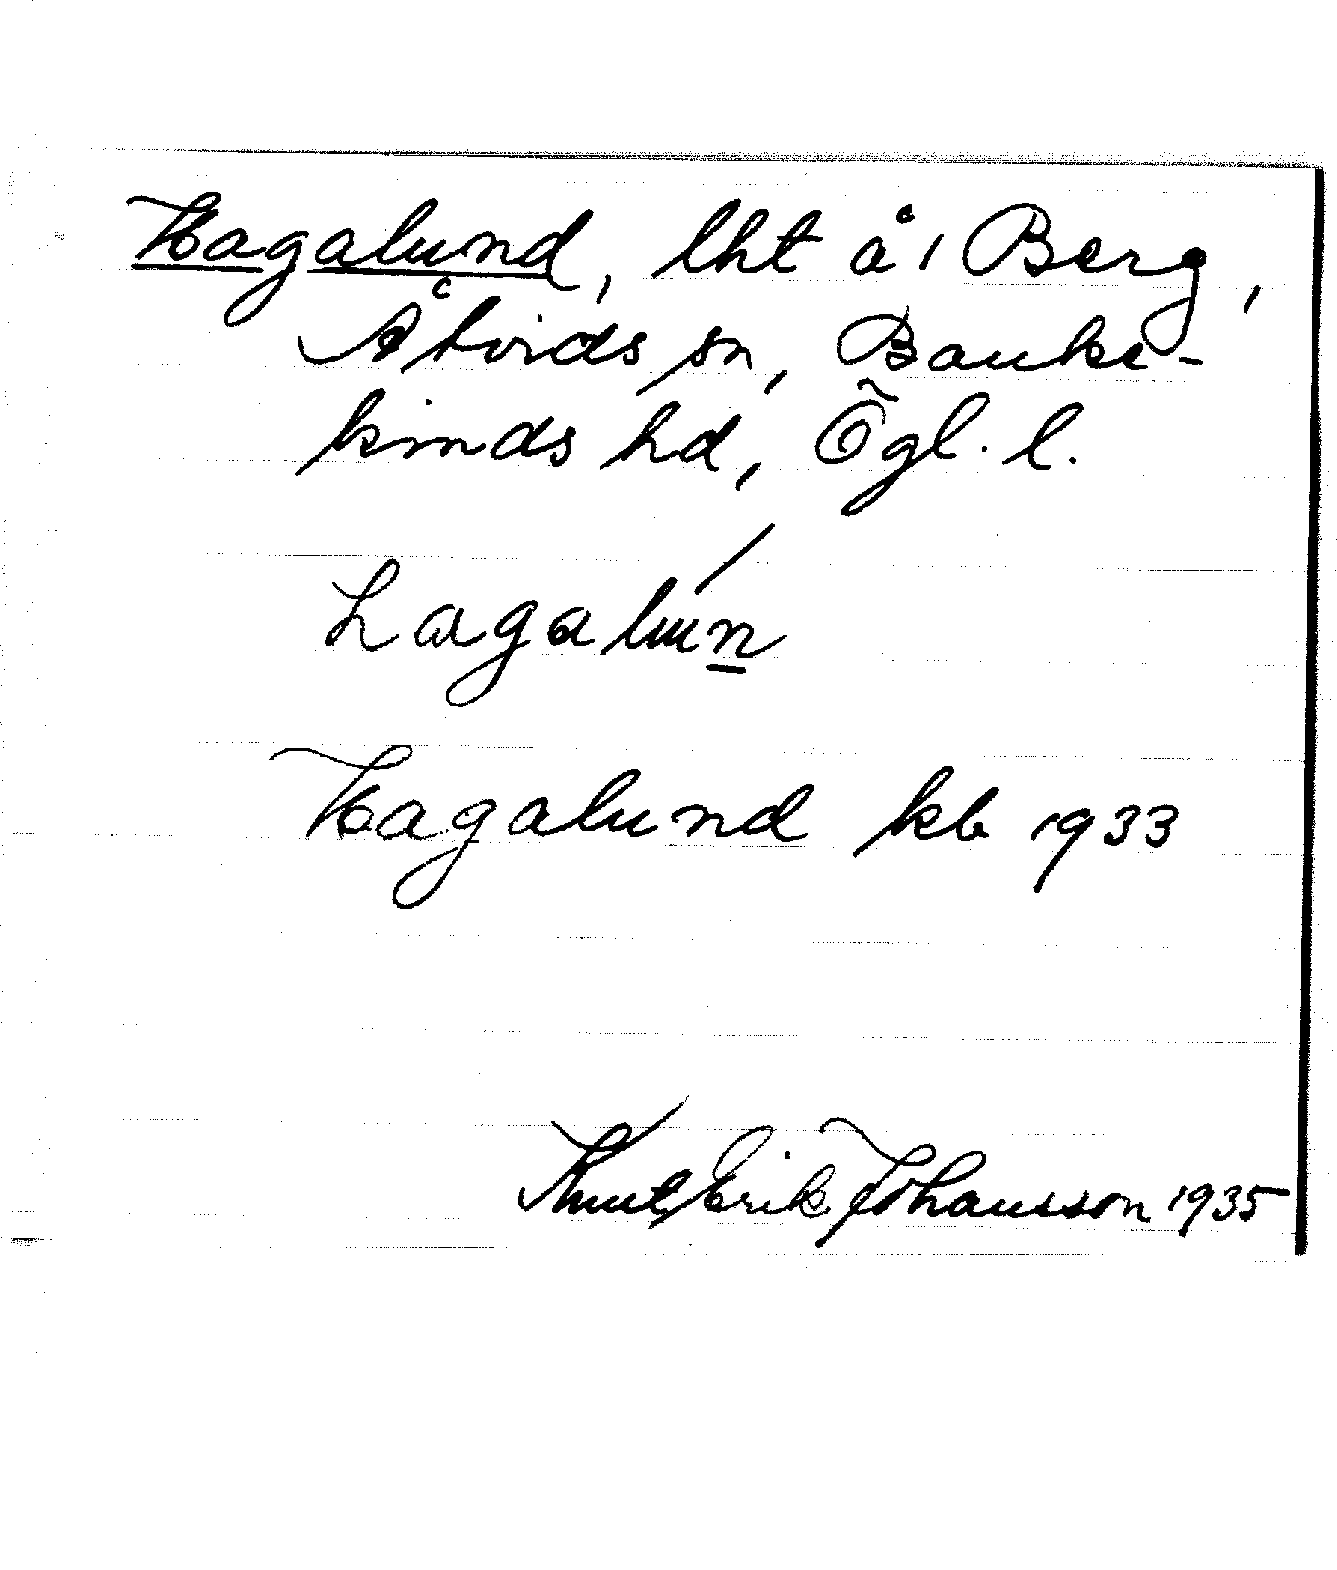 Hagalund, lht å 1 Berg,
Åtvids sn, Banke-
kinds hd, Ögl. l.
hagalun
Hagalund kb 1933
Knut Erik Johansson 1935